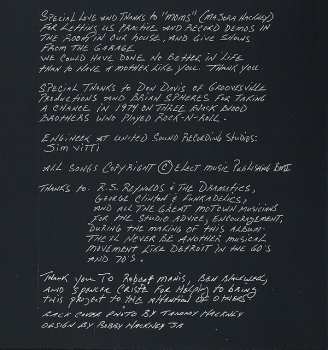 Special Love and Thanks to "Moms" (Majora Hackney)
for letting us practice and record demos in
the room in our house, and give shows
from the garage
we could have done no better in life
than to have a mother like you. Thank you
Special Thanks to Don Davis of Groovesville
Productions and Brian Spheres for taking
a chance in 1974 on three black blood
brothers who played rock-n-roll.
Engineer at United Sound Recording Studios:
Jim Vitti
All songs copyright © Elect Music Publishing BMI
Thanks to: R.S. Reynolds & The Dramatics,
George Clinton & Funkadelic,
and all the great Motown musicians
for the studio advice, encouragement,
during the making of this album.
The'll never be another musical
movement like Detroit in the 60's
and 70's.
Thank you to Robert Manis, Ben Blackwell,
and Spencer Criste for helping to bring
this project to the attention of others
Back cover photo by Tammy Hackney
Design by Bobby Hackney Jr